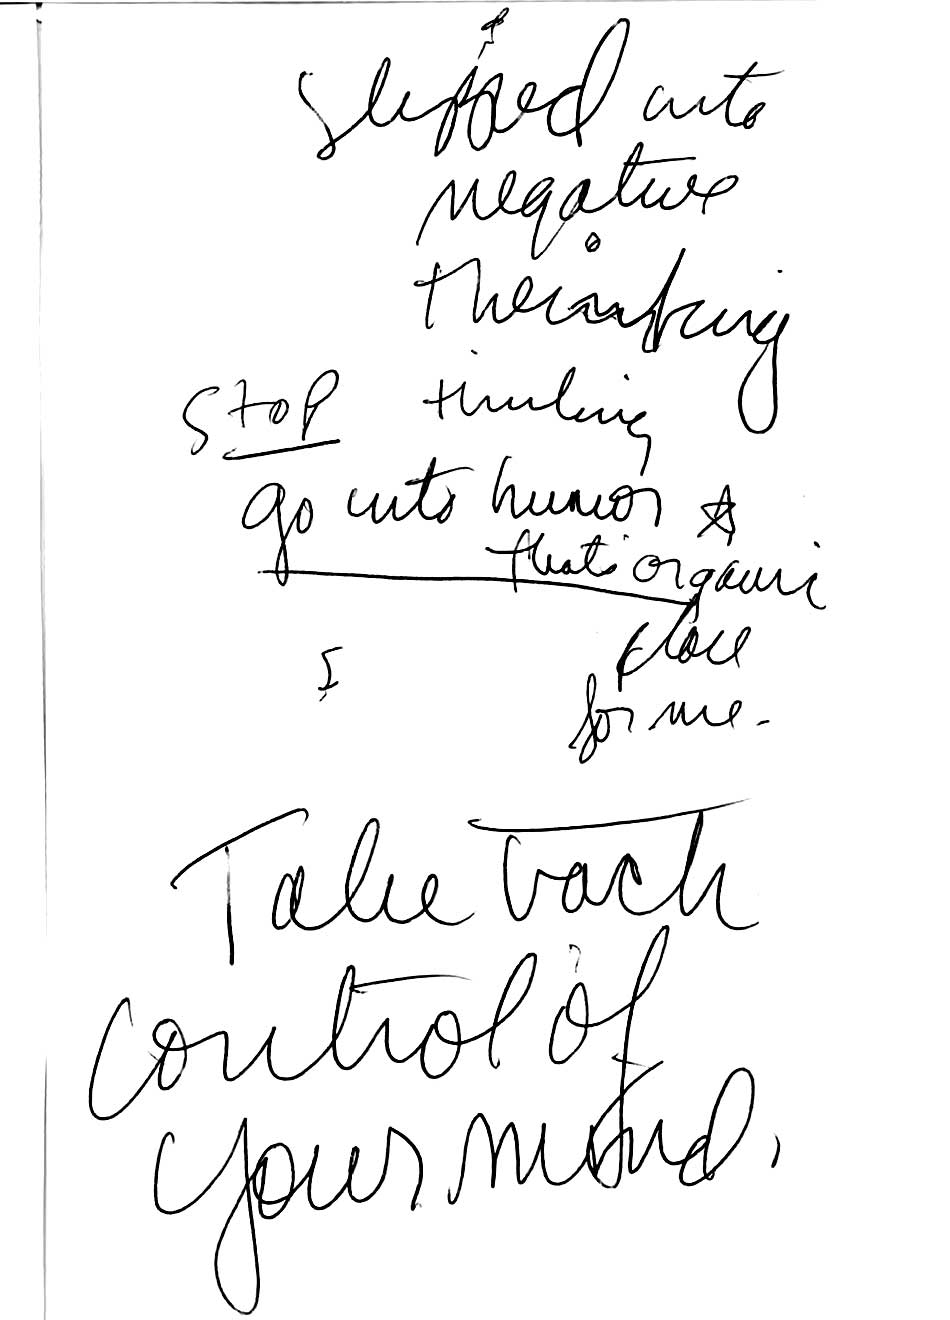 slipped into
negative
thinking
STOP thinking
go into humor
that's organic
place
for me.
Take back
control of
your mind.